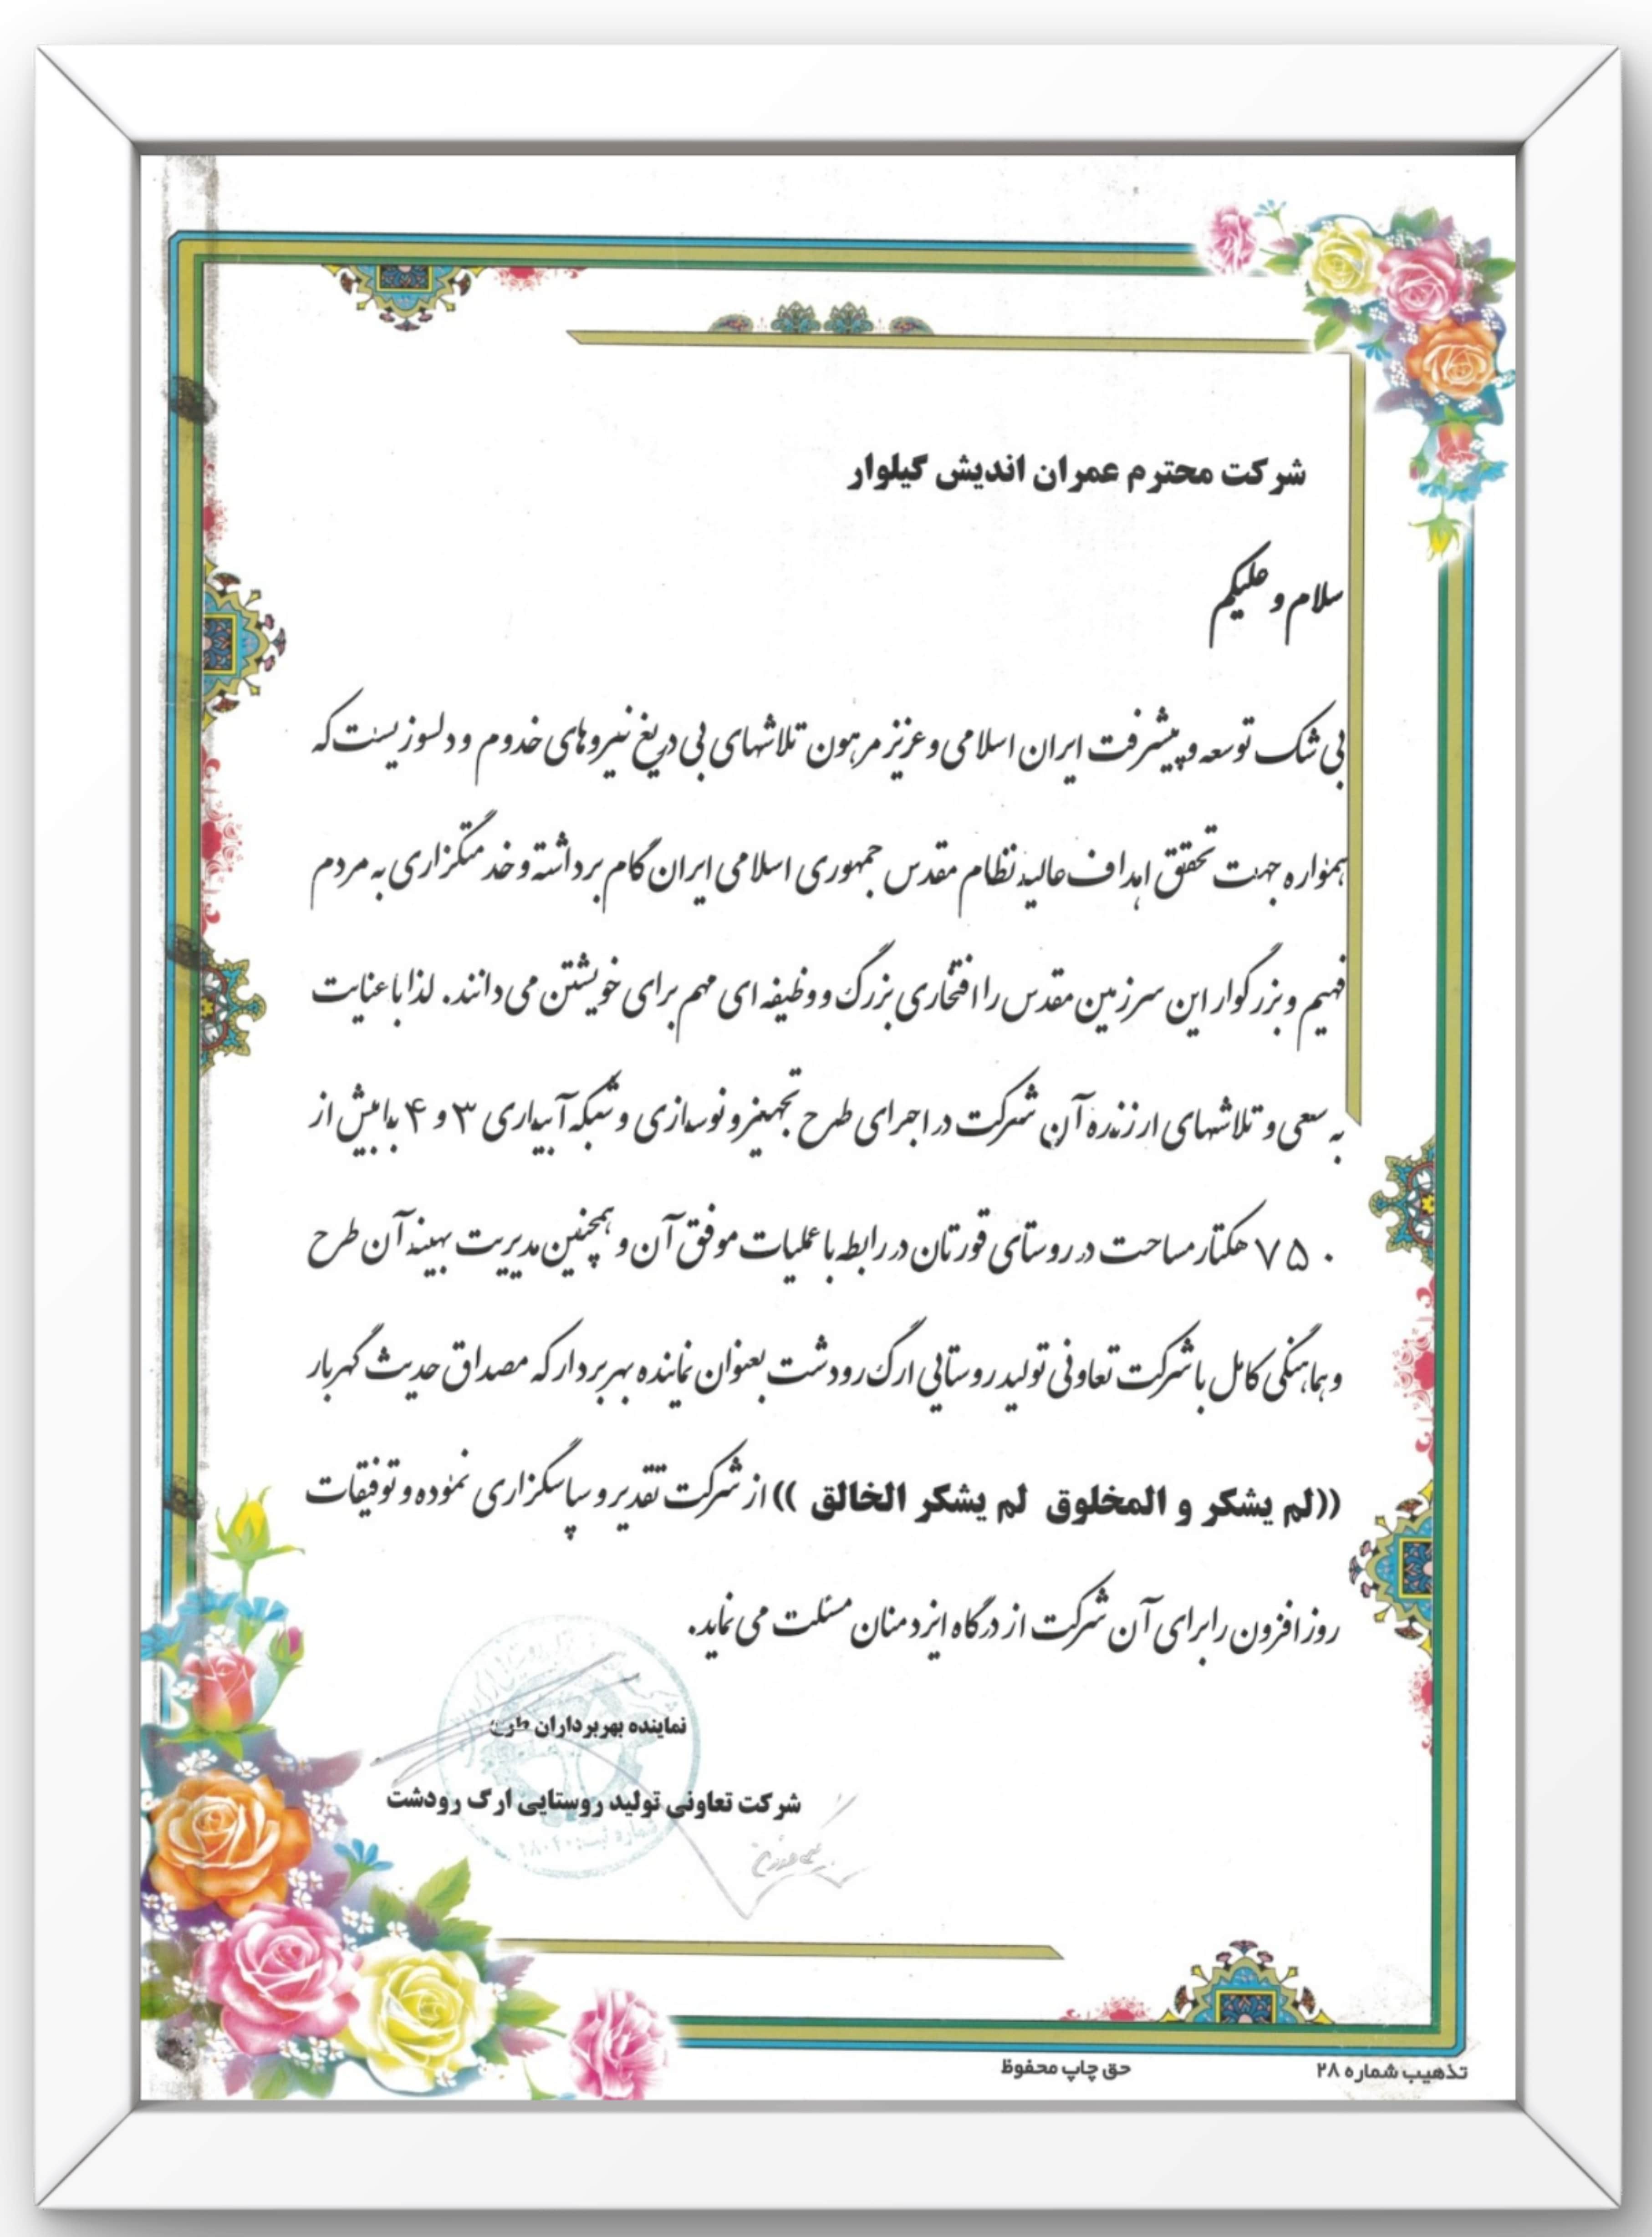 شرکت محترم عمران اندیش گیلوار
سلام و علیکم
بی شک توسعه و پیشرفت ایران اسلامی و عزیز مرهون تلاشهای بی دریغ نیروهای خدوم و دلسوزیست که
همواره جهت تحقق اهداف عالیه نظام مقدس جمهوری اسلامی ایران گام برداشته و خدمتگزاری به مردم
فهیم و بزرگوار این سرزمین مقدس را افتخاری بزرگ و وظیفه ای مهم برای خویشتن می دانند. لذا با عنایت
به سعی و تلاشهای ارزنده آن شرکت در اجرای طرح تجهیز و نوسازی و شبکه آبیاری ۳ و ۴ با بیش از
۷۵۰ هکتار مساحت در روستای قورتان در رابطه با عملیات موفق آن و همچنین مدیریت بهینه آن طرح
و هماهنگی کامل با شرکت تعاونی تولید روستایی ارگ رودشت بعنوان نماینده بهربردار که مصداق حدیث گهربار
((لم یشکر و المخلوق لم یشکر الخالق )) از شرکت تقدیر و سپاسگزاری نموده و توفیقات
روز افزون را برای آن شرکت از درگاه ایزد منان مسئلت می نماید.
نماینده بهربرداران طرح
شرکت تعاونی تولید روستایی ارگ رودشت
حق چاپ محفوظ
تذهیب شماره ۲۸